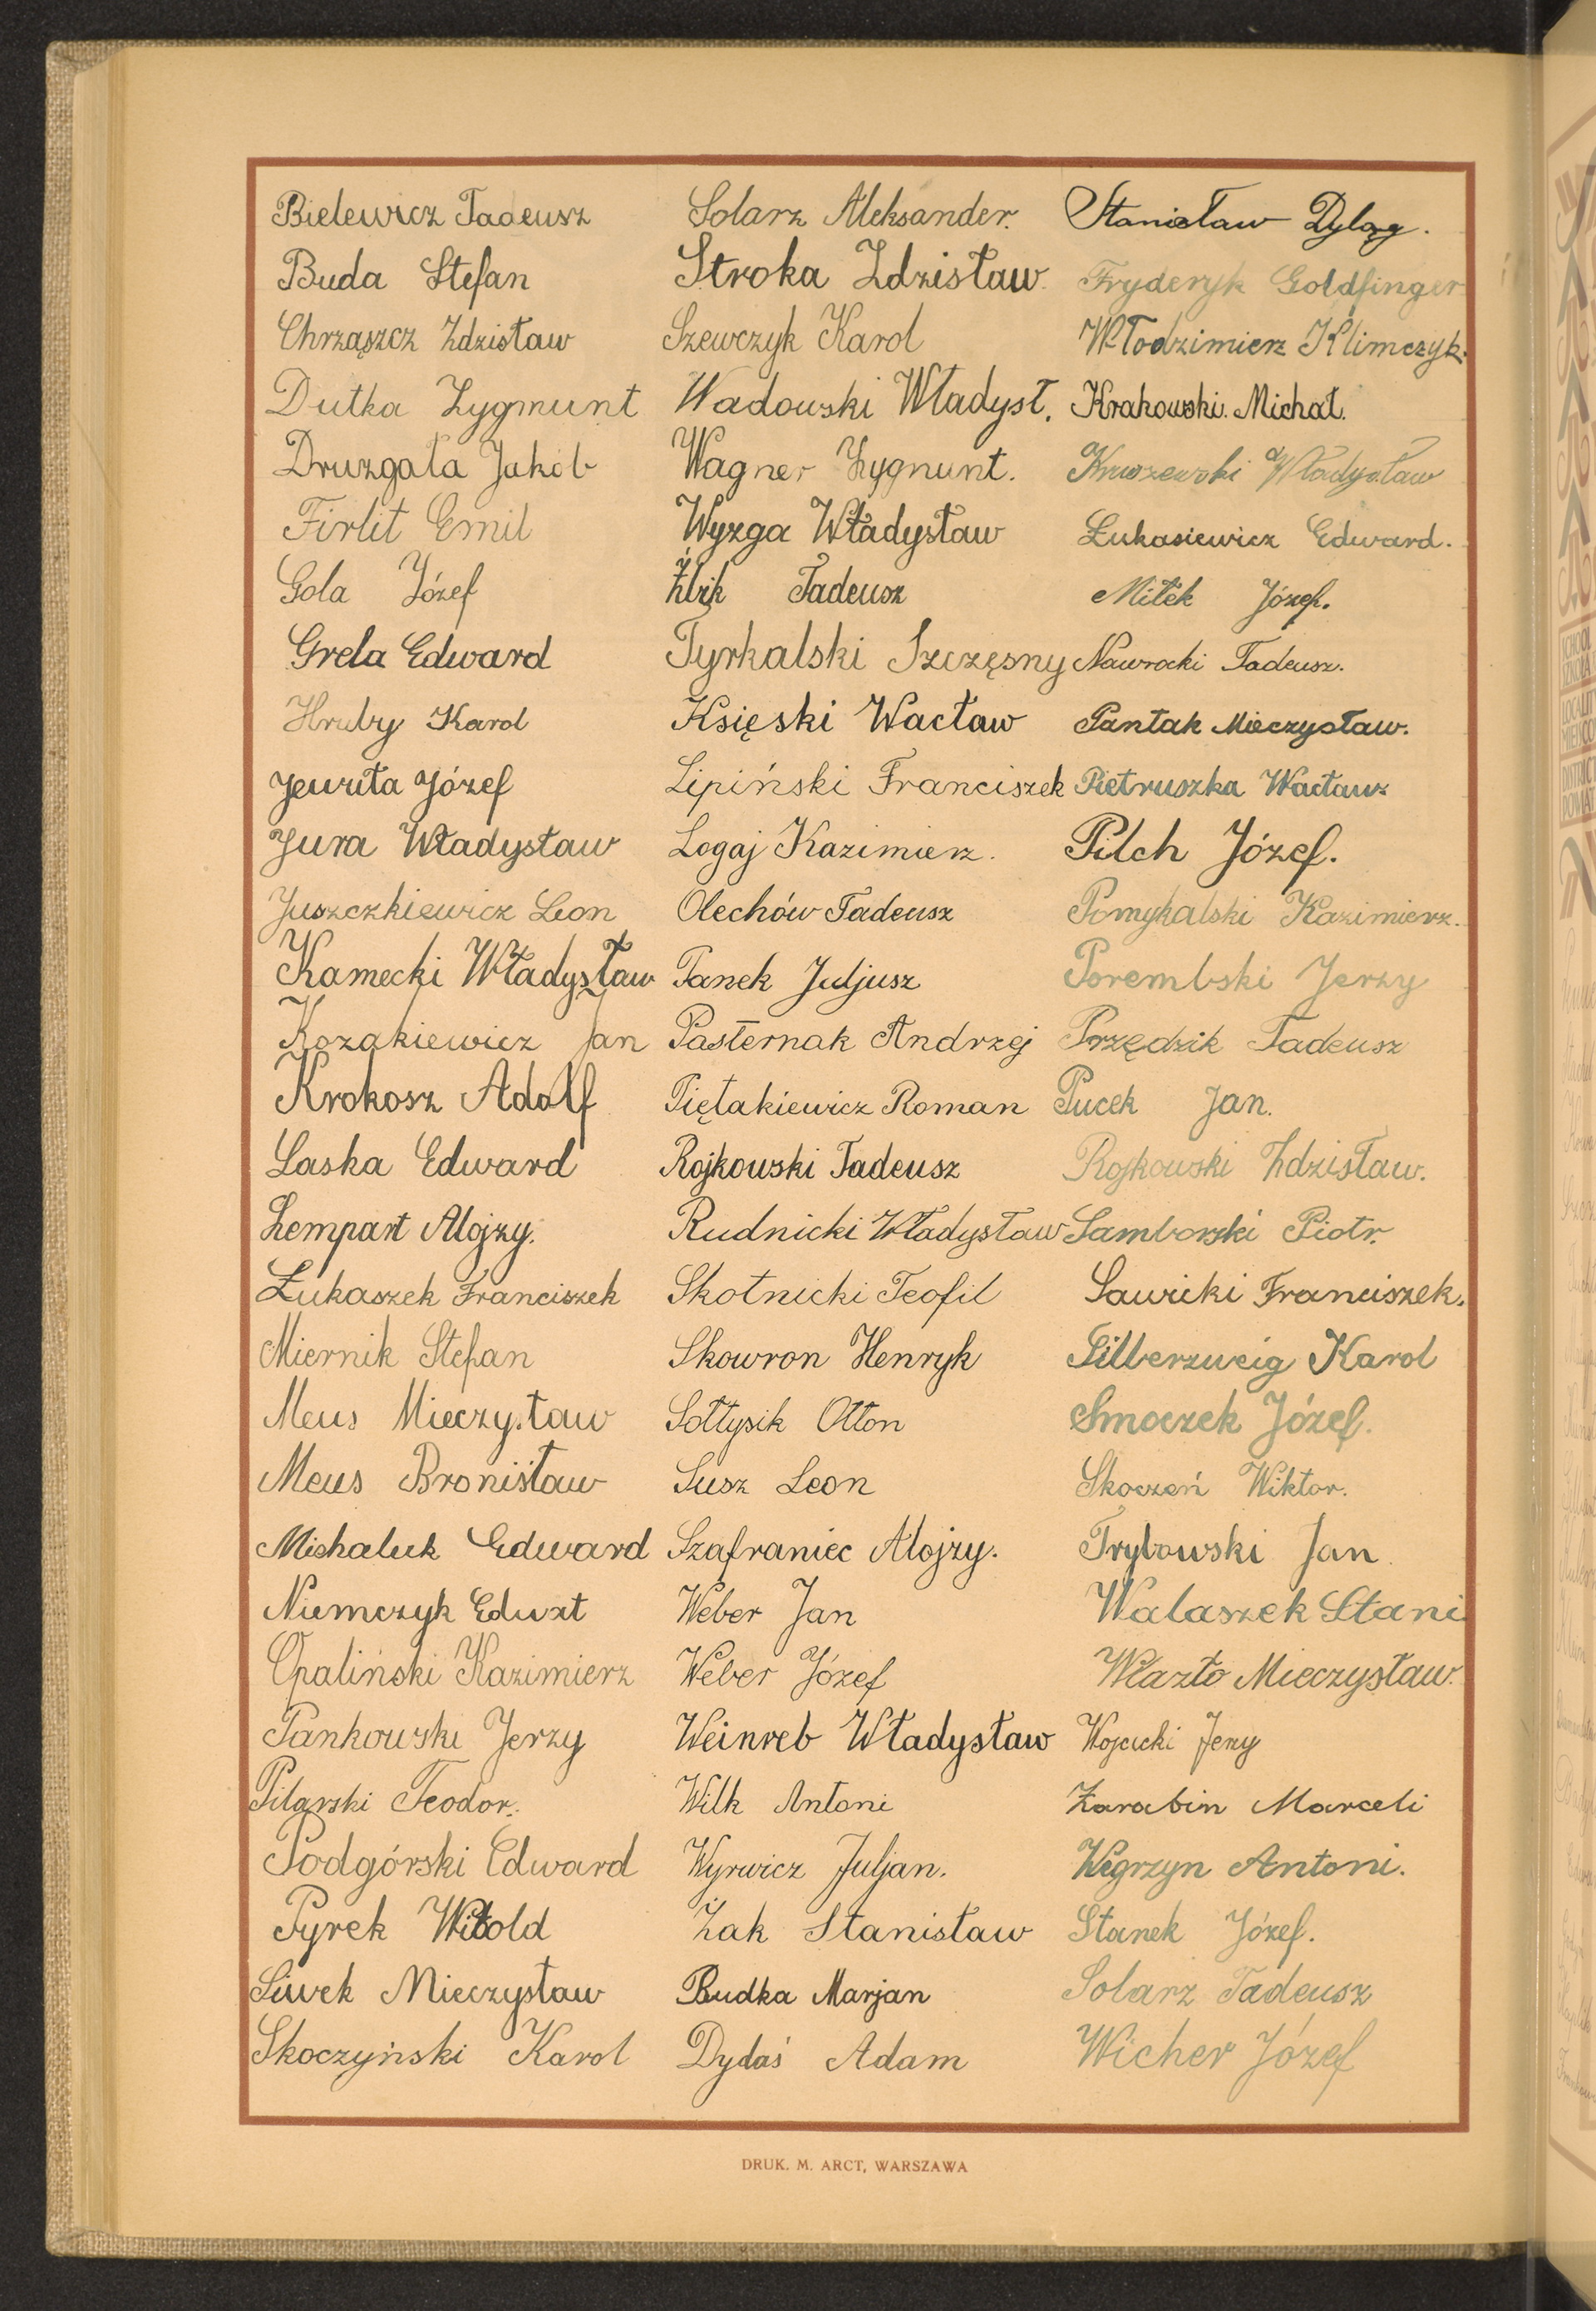 Bielewicz Tadeusz
Buda Stefan
Chrząszcz Zdzisław
Dutka Zygmunt
Druzgała Jakób
Firlit Emil
Gola Józef
Grela Edward
Hruby Karol
Jewuła Józef
Jura Władysław
Juszczkiewicz Leon
Kamecki Władysław
Kozakiewicz Jan
Krokosz Adolf
Laska Edward
Lempart Alojzy.
Łukaszek Franciszek
Miernik Stefan
Meus Mieczysław
Meus Bronisław
Michaluk Edward
Niemczyk Edwart
Opaliński Kazimierz
Pankowski Jerzy
Pilarski Teodor.
Podgórski Edward
Pyrek Witold
Siwek Mieczysław
Skoczyński Karol
Solarz Aleksander.
Stroka Zdzisław.
Szewczyk Karol
Wadowski Władysł.
Wagner Zygmunt.
Wyzga Władysław
Tadeusz
Tyrkalski Szczęsny
Księski Wacław
Lipiński Franciszek
Logaj Kazimierz.
Olechów Tadeusz
Panek Juljusz
Pasternak Andrzej
Piętakiewicz Roman
Rojkowski Tadeusz
Rudnicki Władysław
Skotnicki Teofil
Skowron Henryk
Sołtysik Otton
Susz Leon
Szafraniec Alojzy.
Weber Jan
Weber Józef
Weinreb Władysław
Wilk Antoni
Wyrwicz Juljan.
Żak Stanisław
Budka Marjan
Dydaś Adam
Stanisław Dyląg.
Fryderyk Goldfinger
Włodzimierz Klimczyk.
Krakowski. Michał.
Kruszewski Władysław
Łukasiewicz Edward.
Miłek Józef.
Nawrocki Tadeusz.
Pantak Mieczysław.
Pietruszka Wacław
Pilch Józef.
Pomykalski Kazimierz.
Porembski Jerzy
Przędzik Tadeusz
Pucek Jan.
Rojkowski Zdzisław.
Samborski Piotr.
Sawicki Franciszek.
Silberzweig Karol
Smoczek Józef.
Skoczeń Wiktor.
Trybowski Jan
Walaszek Stani
Włazło Mieczysław.
Wojcicki Jerzy
Zarabin Marceli
Węgrzyn Antoni.
Stanek Józef.
Solarz Tadeusz
Wicher Józef
DRUK. M. ARCT, WARSZAWA